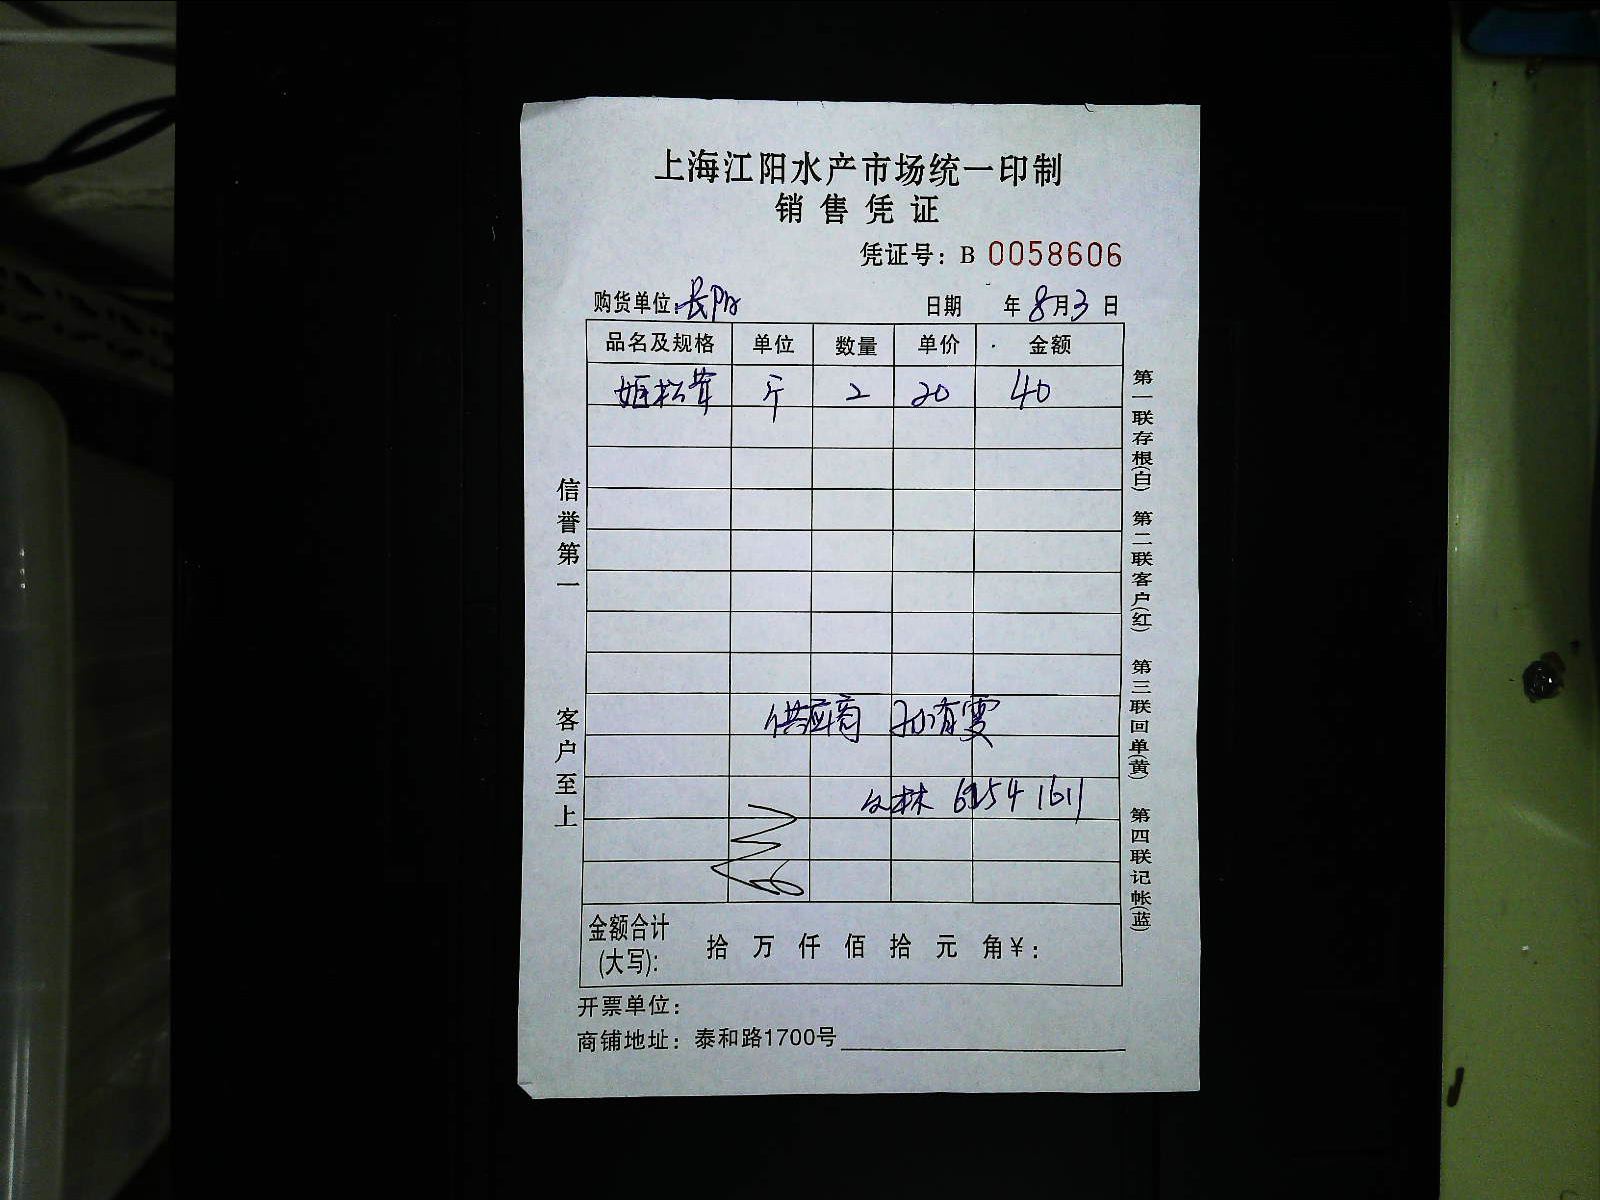 上海江阳水产市场统一印制
销售凭证
凭证号：B 0058606
购货单位：长阳
日期 年8月3日
品名及规格 单位 数量 单价 金额
姬松茸 斤 2 20 40
供应商
林
金额合计(大写)： 拾 万 仟 佰 拾 元 角￥：
开票单位：
商铺地址：泰和路1700号
信誉第一 客户至上
第一联存根(白) 第二联客户(红) 第三联回单(黄) 第四联记帐(蓝)